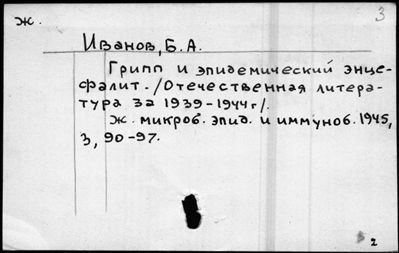 ж.
3
Иванов, Б. А.
Грипп и эпидемический энце-
фалит. /Отечественная литера-
тура за 1939-1944г/.
Ж. микроб. эпид. и иммуноб. 1945,
3, 90-97.
2